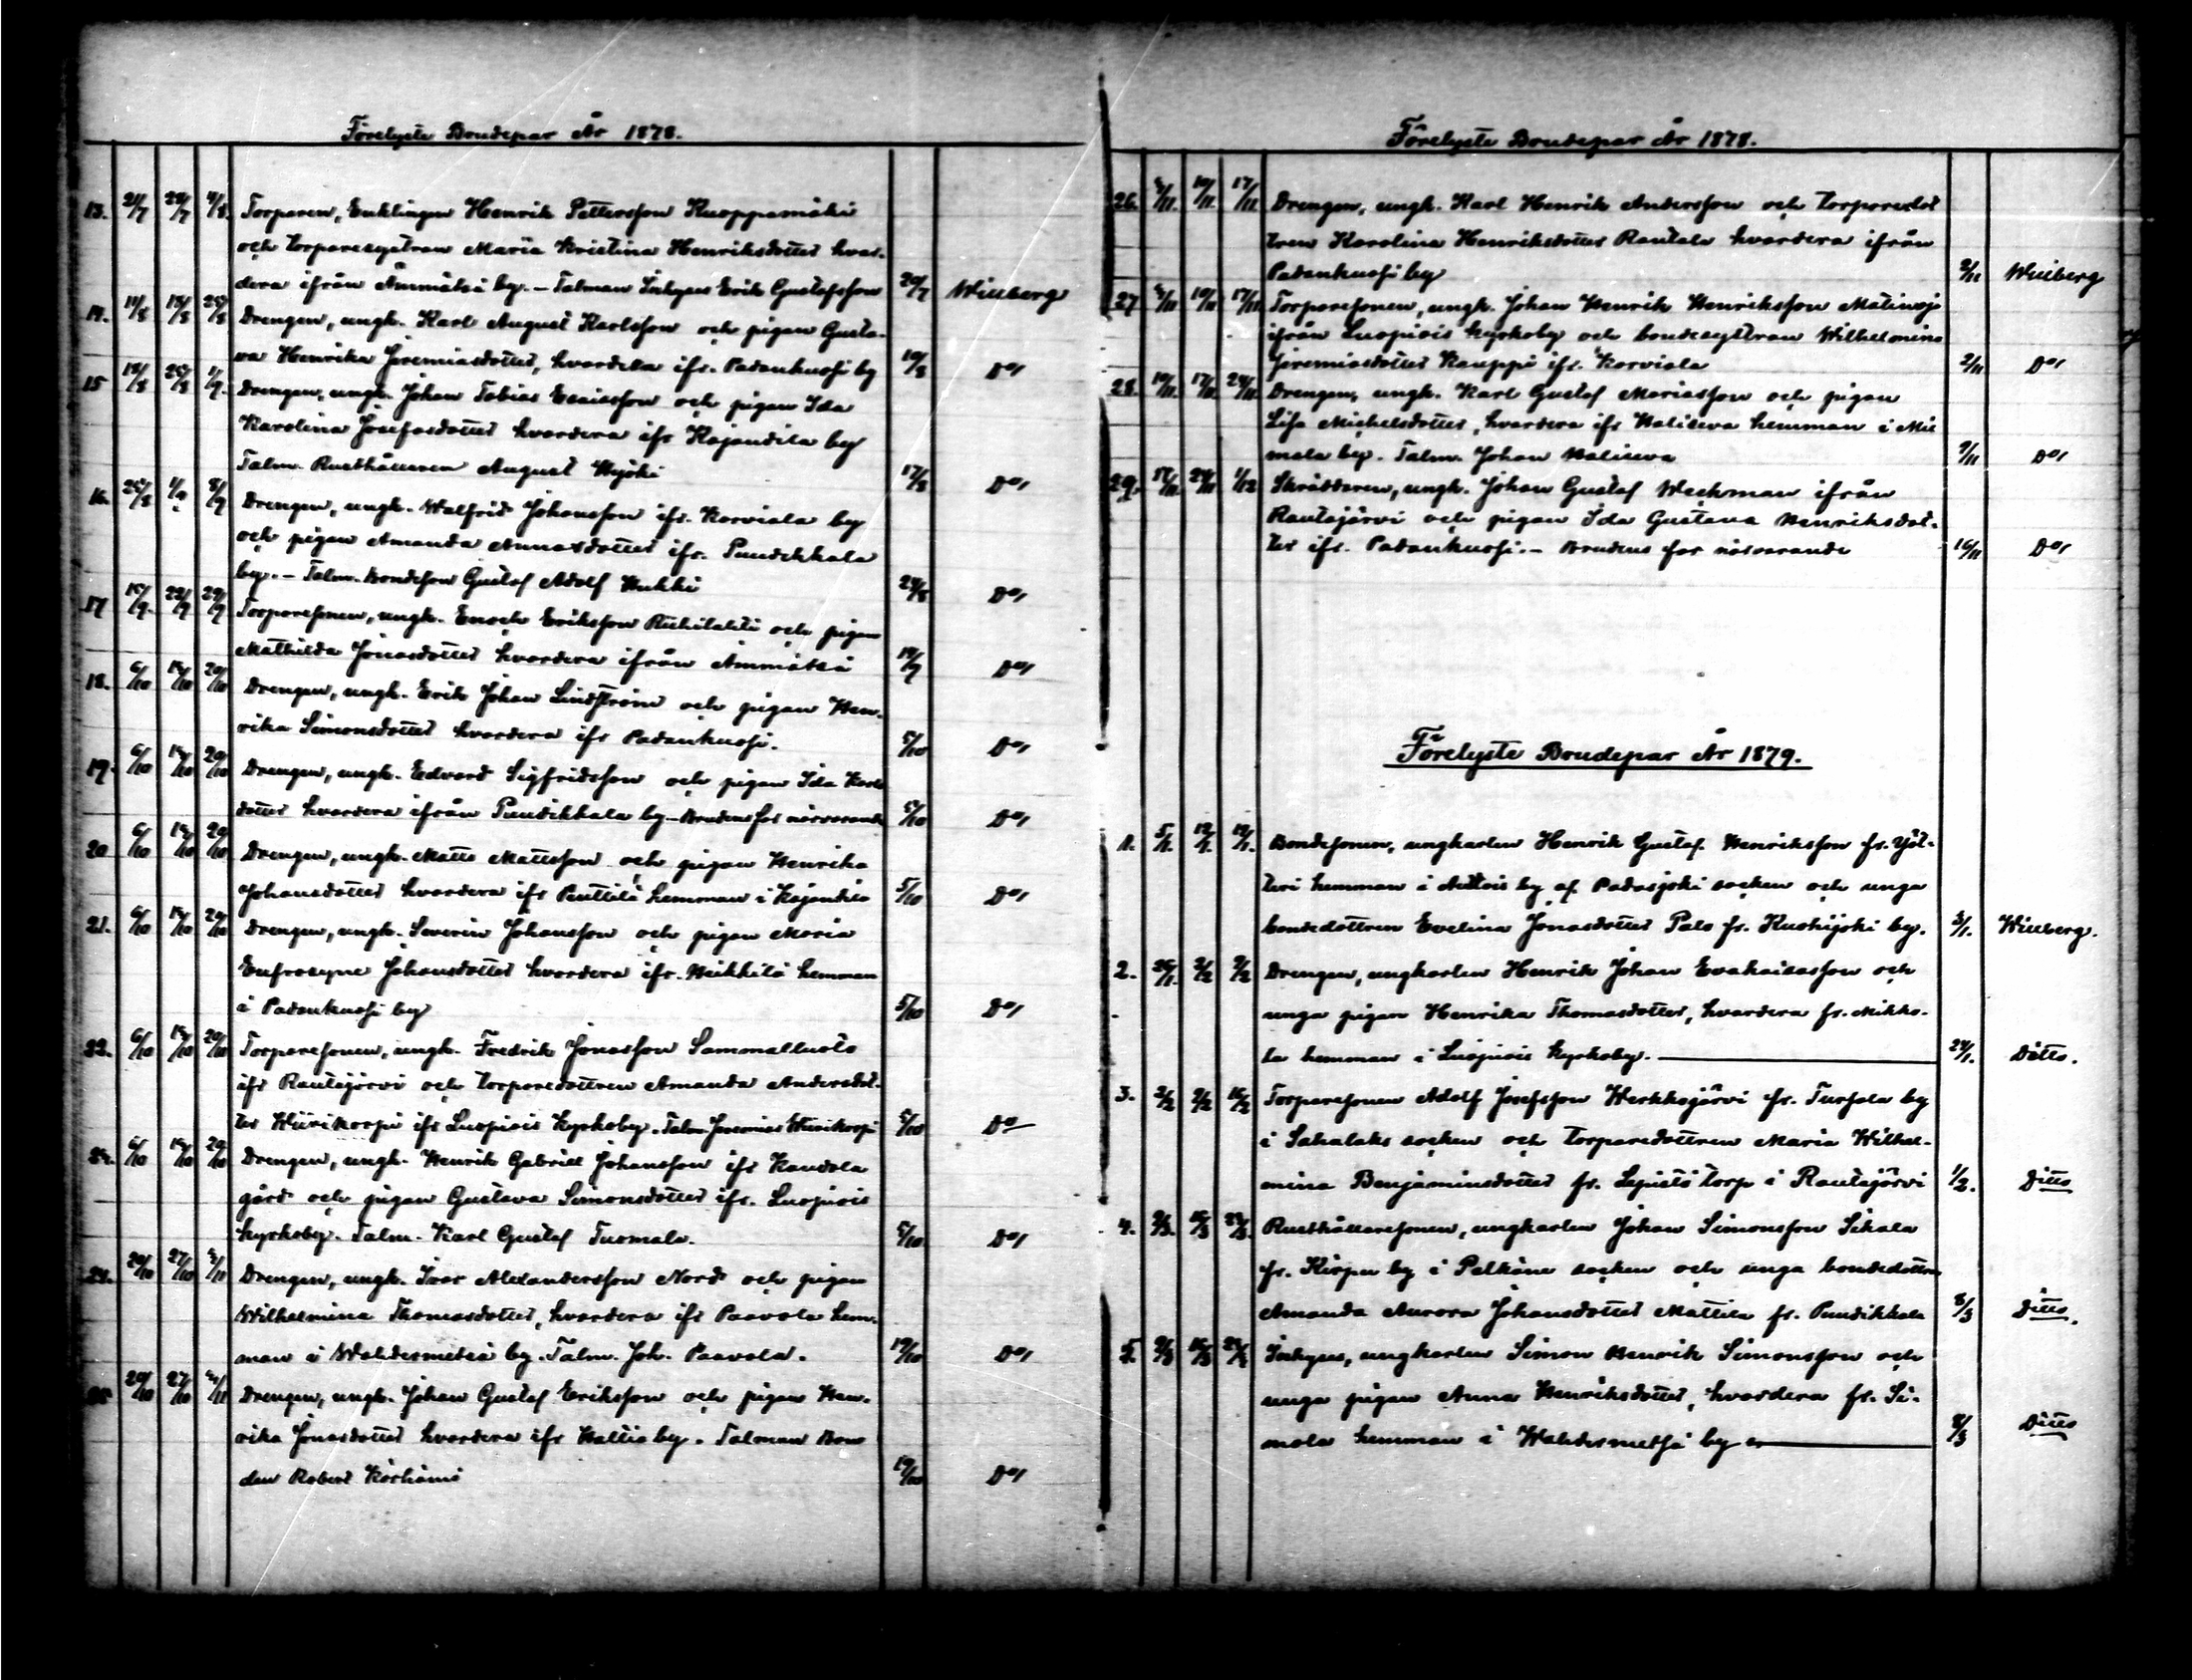 Förelyste Brudepar År 1878.
13. 21/7 28/7 4/8 Torparen, Enklingen Henrik Pettersson Kuoppamäki
och torparesystran Maria Kristina Henriksdotter hvar-
dera ifrån Ämmätsä by. – Talman Inhyses Erik Gustafsson 20/7 Winberg
14. 11/8 18/8 25/8 Drengen, ungk. Karl August Karlsson och pigan Gusta-
va Henrika Jeremiasdotter, hvardera ifr. Padankuosi by 10/8 Do,
15 18/8 25/8 1/9. Drengen, ungk. Johan Tobias Esaiasson och pigan Ida
Karolina Josefsdotter hvardera ifr Kajandila by
Talm. Rusthållaren August Yijöki 17/8 Do,
16. 25/8 1/9 8/9 Drengen, ungk. Walfrid Johansson ifr. Korviala by
och pigan Amanda Annasdotter ifr. Puudikkala
by. – Talm. Bondeson Gustaf Adolf Kukki 24/8 Do,
17 15/9. 22/9 29/9 Torparesonen, ungk. Enoch Eriksson Riihilahti och pigan
Mathilda Jonasdotter hvardera ifrån Ämmätsä 14/9 Do,
18. 6/10 13/10 20/10 Drengen, ungk. Erik Johan Lindström och pigan Hen-
rika Simonsdotter hvardera ifr Padankuosi. 5/10 Do,
19. 6/10 13/10 20/10 Drengen, ungk. Edvard Sigfridsson och pigan Ida Karls
dotter hvardera ifrån Puudikkala by – Brudens far närvarande 5/10 Do,
20 6/10 13/10 20/10 Drengen, ungk. Matts Mattsson och pigan Henrika
Johansdotter hvardera ifr Penttilä hemman i Kajandila 5/10 Do,
21. 6/10 13/10 20/10 Drengen, ungk. Severin Johansson och pigan Maria
Eufrosyne Johansdotter hvardera ifr. Heikkilä hemman
i Padankuosi by 5/10 Do,
22. 6/10 13/10 20/10 Torparesonen, ungk. Fredrik Jonasson Sammallusto
ifr Rautajärvi och torparedottren Amanda Andersdot-
ter Hiirikorpi ifr Luopiois Kyrkoby. Talm. Jeremias Hiirikorpi 5/10 Do
23. 6/10 13/10 20/10 Drengen, ungk. Henrik Gabriel Johansson ifr Kantola
gård och pigan Gustava Simonsdotter ifr. Luopiois
Kyrkoby. Talm. Karl Gustaf Tuomala. 5/10 Do,
24. 20/10 27/10 3/11 Drengen, ungk. Ivar Alexandersson Nord och pigan
Wilhelmina Thomasdotter, hvardera ifr Paavola hem-
man i Wahdermetsä by. Talm. Joh. Paavola. 19/10 Do,
25. 20/10 27/10 3/11 Drengen, ungk. Johan Gustaf Eriksson och pigan Hen-
rika Jonasdotter hvardera ifr Haltia by. Talman Bon
den Robert Körhämö 19/10 Do,
Förelyste Brudepar År 1878.
26. 3/11. 10/11. 17/11 Drengen, ungk. Karl Henrik Andersson och torparedot
tren Karolina Henriksdotter Rautala hvardera ifrån
Padankuosi by 2/11 Winberg
27 3/11 10/11 17/11 Torparesonen, ungk. Johan Henrik Henriksson Mätinoja
ifrån Luopiois Kyrkoby och bondesystran Wilhelmina
Jeremiasdotter Kauppi ifr. Korviala 2/11 Do,
28. 10/11. 17/11. 24/11 Drengen, ungk. Karl Gustaf Mariasson och pigan
Lisa Michelsdotter, hvardera ifr Waliseva hemman i
by. Talm. Johan Waliseva 9/11 Do,
29. 17/11. 24/11 1/12 Skräddaren, ungk. Johan Gustaf Weckman ifrån
Rautajärvi och pigan Ida Gustava Henriksdot-
ter ifr. Padankuosi. – Brudens far närvarande 16/11 Do,
Förelyste Brudepar År 1879.
1. 5/1. 12/1. 19/1. Bondesonen, ungkarlen Henrik Gustaf Henriksson fr.
hemman i Auttois by af Padasjoki socken och unga
bondedottren Evelina Jonasdotter Palo fr. Kuohijoki by. 3/1. Winberg.
2. 26/1. 2/2 9/2 Drengen, ungkarlen Henrik Johan Evakaisasson och
unga pigan Henrika Thomasdotter, hvardera fr. Mikko-
la hemman i Luopiois Kyrkoby. 24/1. Ditto.
3. 2/2 9/2 16/2 Torparesonen Adolf Josefsson Werkkojärvi fr. Tursola by
i Sahalaks socken och torparedottren Maria Wilhel-
mina Benjaminsdotter fr. Lepistö torp i Rautajärvi 1/2. Ditto
4. 9/3. 16/3 23/3. Rusthållaresonen, ungkarlen Johan Simonsson Sikala
fr. Kirpu by i Pelkäne socken och unga bondedottren
Amanda Aurora Johansdotter Mattila fr. Puudikkala 8/3 Ditto.
5. 9/3 16/3 23/3 Inhyses, ungkarlen Simon Henrik Simonsson och
unga pigan Anna Henriksdotter, hvardera fr. Si-
mola hemman i Wahdermetsä by 8/3 Ditto